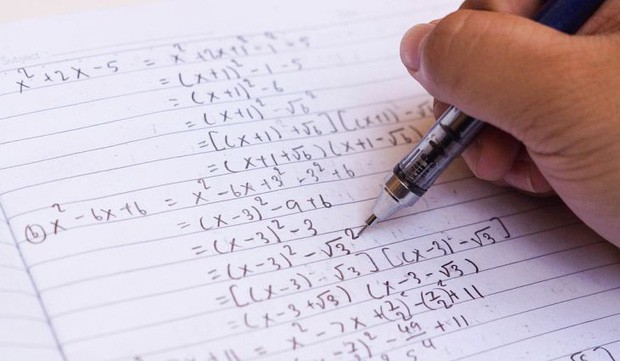 Subject
x² + 2x - 5 = x² + 2x + 1² - 1² - 5
= (x+1)² - 1 - 5
= (x+1)² - 6
= (x+1)² - √6²
= [(x+1)² + √6] [(x+1)² - √6
= (x+1+√6) (x+1-√6)
(b) x² - 6x + 6 = x² - 6x + 3² - 3² + 6
= (x-3)² - 9 + 6
= (x-3)² - 3
= (x-3)² - √3²
= [(x-3) - √3] [(x-3)² - √3]
= (x-3+√3) (x-3-√3)
+ 11 = x² - 7x + (7/2)² - (7/2)² + 11
)² - 49/4 + 11